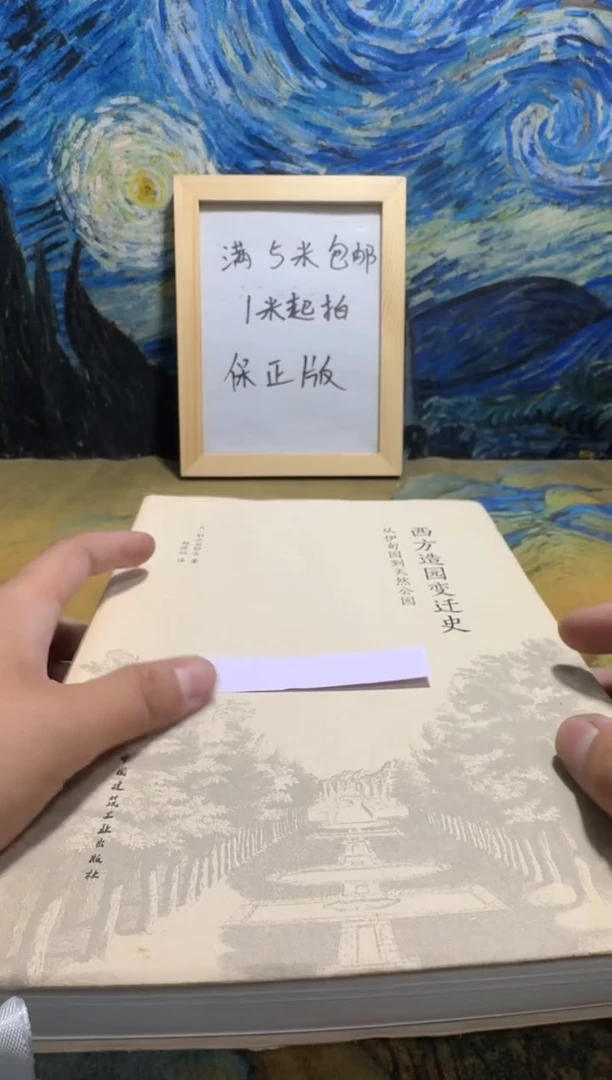 满5米包邮
1米起拍
保正版
西方造园变迁史
从伊甸园到天然公园
中国建筑工业出版社